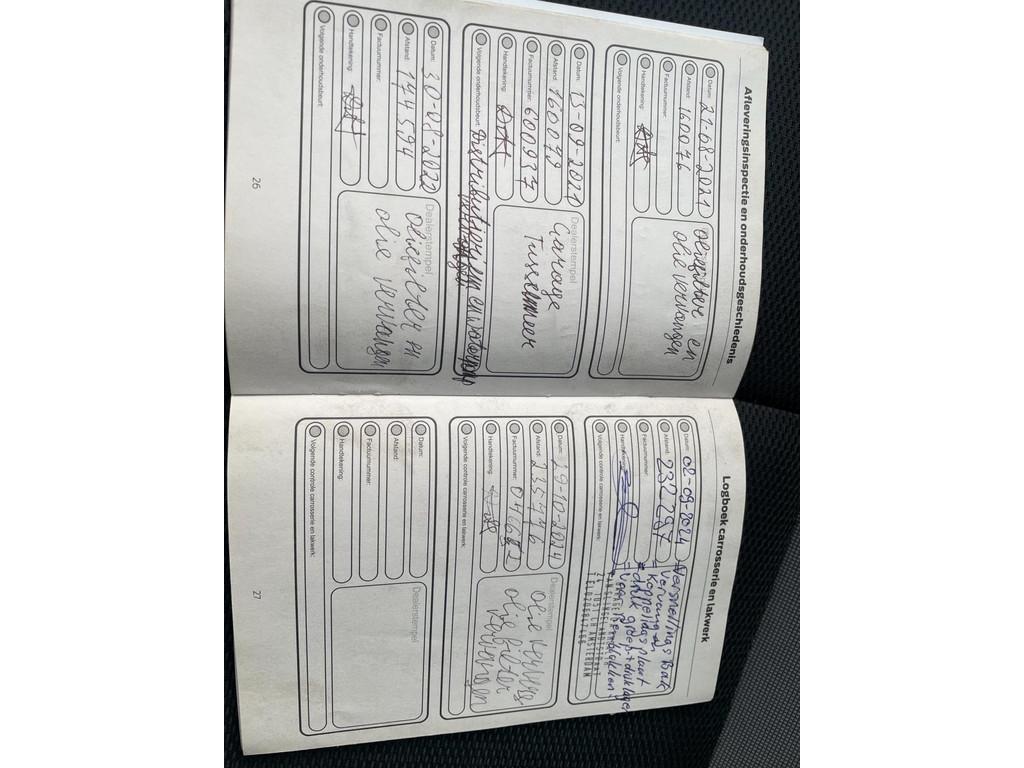 Afleveringsinspectie en onderhoudsgeschiedenis
Datum: 21-08-2021
Afstand: 160076
Factuurnummer:
Handtekening:
Volgende onderhoudsbeurt:
Oliefilter en
olie vervangen
Datum: 13-09-2021
Afstand: 160079
Factuurnummer: 600937
Handtekening:
Volgende onderhoudsbeurt: Distributieriem en waterpomp
Dealerstempel
Garage
Tussenmeer
Datum: 30-08-2022
Afstand: 174594
Factuurnummer:
Handtekening:
Volgende onderhoudsbeurt:
Dealerstempel
Oliefilter en
olie vervangen
26
Logboek carrosserie en lakwerk
Datum: 02-09-2024
Afstand: 232287
Factuurnummer:
Handtekening:
Volgende controle carrosserie en lakwerk:
Versnellings Bak
vervangen
koppelings plaat
druk groep + druklager
AMSTERDAM
Datum: 29-10-2024
Afstand: 235776
Factuurnummer:
Handtekening:
Volgende controle carrosserie en lakwerk:
Dealerstempel
olie
olie filter
vervangen
Datum:
Afstand:
Factuurnummer:
Handtekening:
Volgende controle carrosserie en lakwerk:
Dealerstempel
27